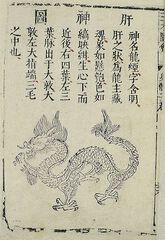 肝神圖
神名龍煙字含明
肝之狀為龍主藏
魂象如懸匏色如
縞映紺生心下而
近後右四葉左三
葉脈出于大敦大
敦左大指端三毛
之中也